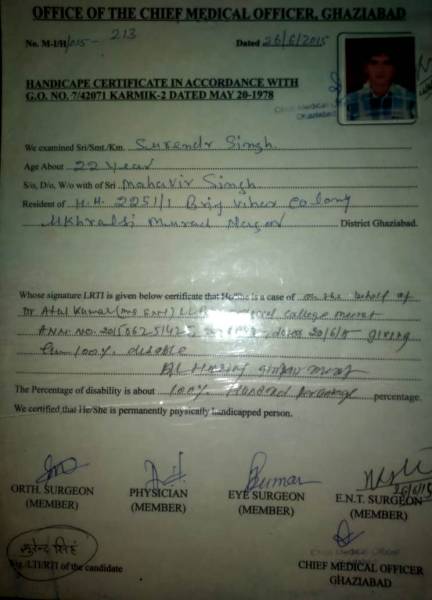 OFFICE OF THE CHIEF MEDICAL OFFICER, GHAZIABAD
No. M-1/H/015- 213 Dated 26/6/2015
HANDICAPE CERTIFICATE IN ACCORDANCE WITH
G.O. NO. 7/42071 KARMIK-2 DATED MAY 20-1978
We examined Sri/Smt./Km. Surendr Singh
Age About 22 Year
S/o, D/o, W/o with of Sri Mahavir Singh
Resident of H.N. 2251/1 Brij Vihar Colony
Murad Nagar District Ghaziabad.
Whose signature LRTI is given below certificate that He/She is a case of on the behalf of
Dr Atal Kumar College
20/6/15 giving
100%. disable
The Percentage of disability is about 100%. Hundred percentage percentage.
We certified that He/She is permanently physically handicapped person.
ORTH. SURGEON
(MEMBER)
PHYSICIAN
(MEMBER)
EYE SURGEON
(MEMBER)
E.N.T. SURGEON
(MEMBER)
26/6/15
सुरेन्द्र सिंह
Sig./LTI/RTI of the candidate
CHIEF MEDICAL OFFICER
GHAZIABAD